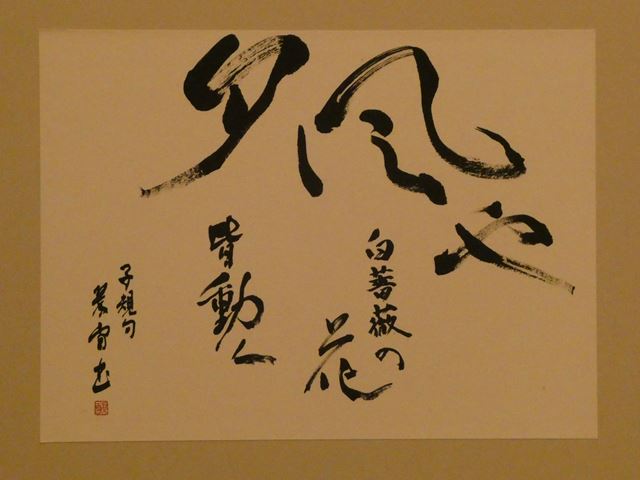 夕風や
白薔薇の
花
皆動く
子規句